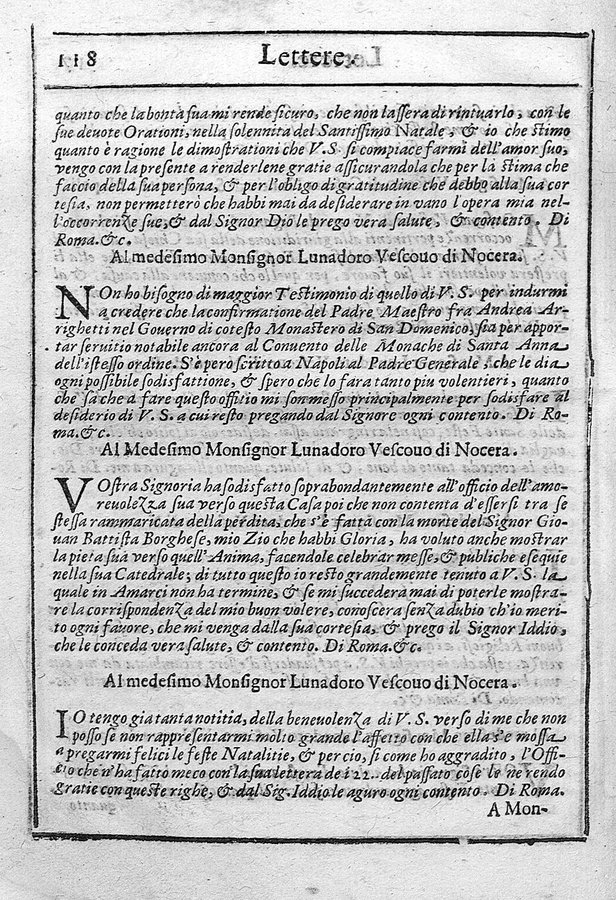 118 Lettere.
quanto che la bontà sua mi rende sicuro, che non lasserà di rintuarlo, con le
sue deuote Orationi, nella solennità del Santissimo Natale, & io che stimo
quanto è ragione le dimostrationi che V.S. si compiace farmi dell'amor suo,
vengo con la presente a renderlene gratie assicurandola che per la stima che
faccio della sua persona, & per l'obligo di gratitudine che debbo alla sua cor
tesia, non permetterò che habbi mai da desiderare in vano l'opera mia nel-
l'occorrenze sue, & dal Signor Dio le prego vera salute, & contento. Di
Roma. &c.
Al medesimo Monsignor Lunadoro Vescouo di Nocera.
NOn ho bisogno di maggior Testimonio di quello di V. S. per indurmi
a credere che la confirmatione del Padre Maestro fra Andrea Ar-
righetti nel Gouerno di cotesto Monastero di San Domenico, sia per appor-
tar seruitio notabile ancora al Conuento delle Monache di Santa Anna
dell'istesso ordine. S'è però scritto a Napoli al Padre Generale, che le dia
ogni possibile sodisfattione, & spero che lo farà tanto piu volentieri, quanto
che sà che a fare questo offitio mi son messo principalmente per sodisfare al
desiderio di V. S. a cui resto pregando dal Signore ogni contento. Di Ro-
ma. &c.
Al Medesimo Monsignor Lunadoro Vescouo di Nocera.
VOstra Signoria ha sodisfatto soprabondantemente all'officio dell'amo-
reuolezza sua verso questa Casa poi che non contenta d'essersi tra se
stessa rammaricata della perdita, che s'è fatta con la morte del Signor Gio-
uan Battista Borghese, mio Zio che habbi Gloria, ha voluto anche mostrar
la pieta sua verso quell'Anima, facendole celebrar messe, & publiche esequie
nella sua Catedrale; di tutto questo io resto grandemente tenuto a V. S. la
quale in Amarci non ha termine, & se mi succederà mai di poterle mostra-
re la corrispondenza del mio buon volere, conoscerà senza dubio ch'io meri-
to ogni fauore, che mi venga dalla sua cortesia, & prego il Signor Iddio,
che le conceda vera salute, & contento. Di Roma. &c.
Al medesimo Monsignor Lunadoro Vescouo di Nocera.
IO tengo gia tanta notitia, della beneuolenza di V. S. verso di me che non
posso se non rappresentarmi molto grande l'affetto con che ella s'è mossa
a pregarmi felici le feste Natalitie, & percio, si come ho aggradito, l'Offi-
cio che n'ha fatto meco con la sua lettera de i 22. del passato cosè le ne rendo
gratie con queste righe, & dal Sig. Iddio le aguro ogni contento. Di Roma.
A Mon-